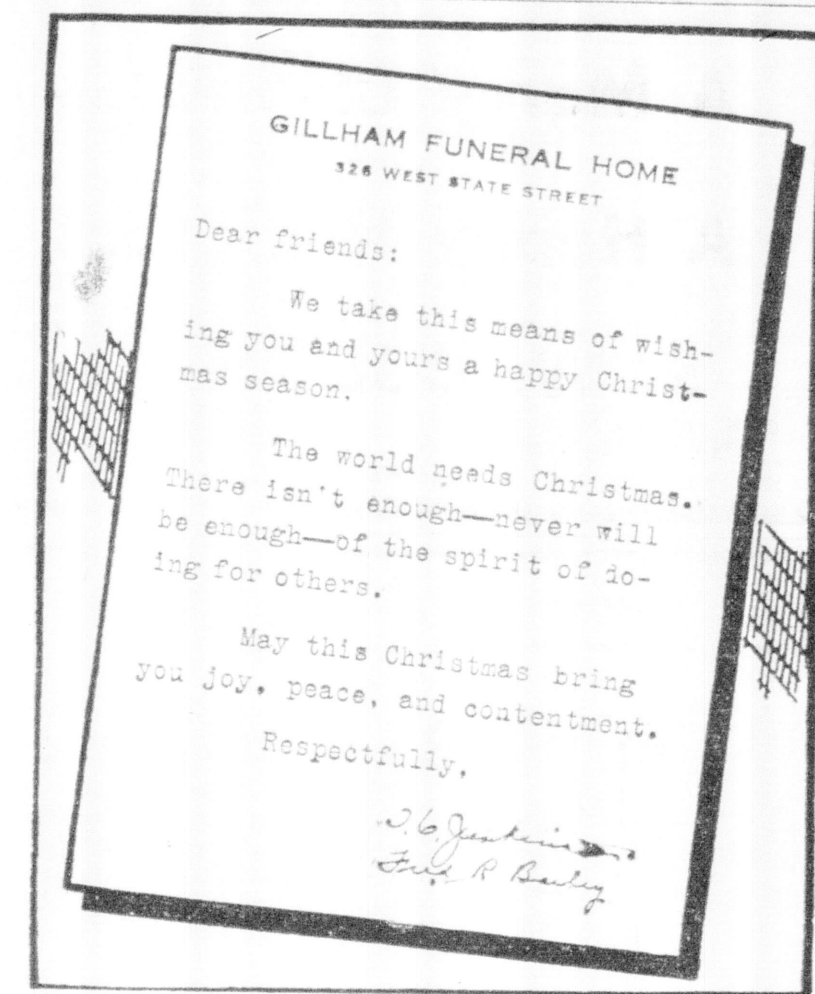 GILLHAM FUNERAL HOME
326 WEST STATE STREET
Dear friends:
We take this means of wish-
ing you and yours a happy Christ-
mas season.
The world needs Christmas.
There isn't enough—never will
be enough—of the spirit of do-
ing for others.
May this Christmas bring
you joy, peace, and contentment.
Respectfully,
Fred R Bailey